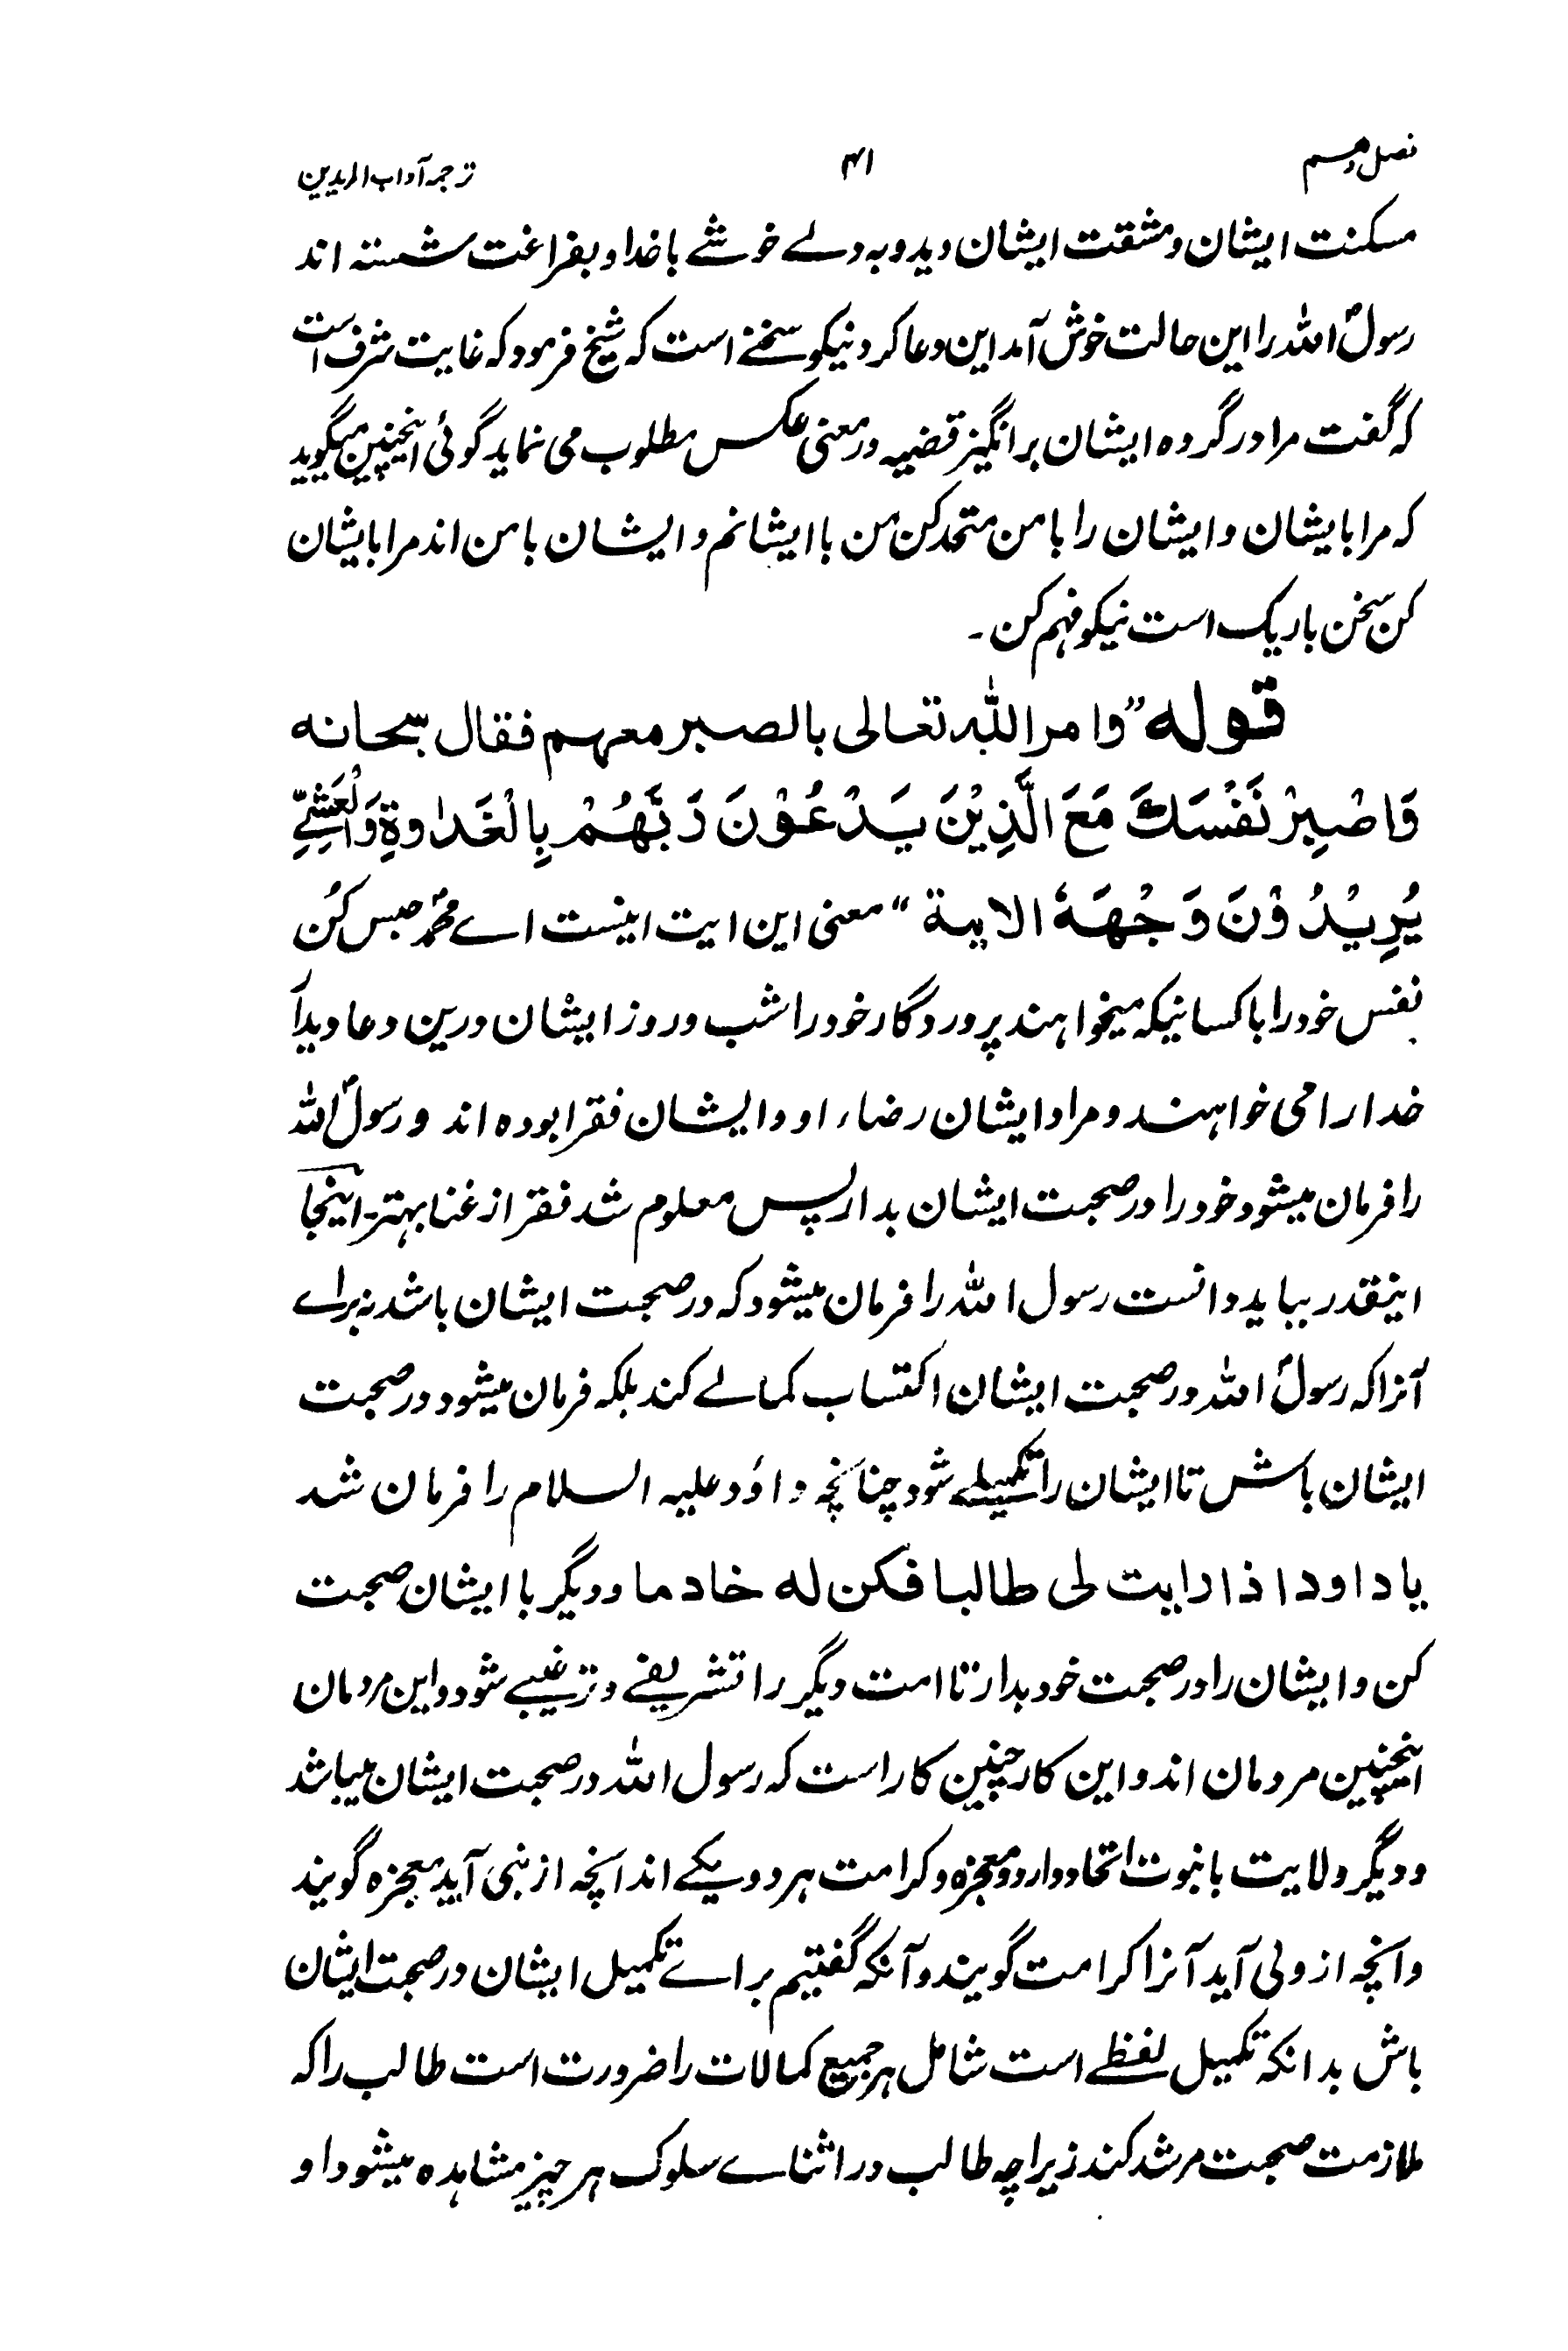 فصل دهم ۴۱ ترجمه آداب المریدین
مسکنت ایشان و مشقت ایشان دید و به دلے خوشے با خدا و بفراغت نشسته اند
رسولؐ الله را این حالت خوش آمد این دعا کرد نیکو سخنے است که شیخ فرمود که غایت شرف است
که گفت مرا در گروه ایشان برانگیز قضیه در معنی عکس مطلوب می نماید گوئی اینچنین میگوید
که مرا بایشان و ایشان را با من متحد کن من با ایشانم و ایشان با من اند مرا بایشان
کن سخن باریک است نیکو فهم کن ۔
قوله ”وامر الله تعالی بالصبر معهم فقال سبحانه
وَاصْبِرْ نَفْسَكَ مَعَ الَّذِیْنَ یَدْعُوْنَ رَبَّهُمْ بِالْغَدَاوةِ وَالْعَشِیِّ
یُرِیْدُوْنَ وَجْهَهٗ الایة“ معنی این ایت اینست اے محمدؐ حبس کُن
نفس خود را با کسانیکه میخواهند پروردگار خود را شب و روز ایشان درین دعا دیداً
خدا را می خواهند و مراد ایشان رضاء او و ایشان فقرا بوده اند و رسولؐ الله
را فرمان میشود خود را در صحبت ایشان بدار پس معلوم شد فقر از غنا بهتر۔ اینجا
اینقدر بباید دانست رسول الله را فرمان میشود که در صحبت ایشان باشد نه براے
آنرا که رسولؐ الله در صحبت ایشان اکتساب کمالے کند بلکه فرمان میشود در صحبت
ایشان باش تا ایشان را تکمیلے شود چنانچه داؤد علیه السلام را فرمان شد
یا داود اذا رایت لی طالبا فکن له خادما و دیگر با ایشان صحبت
کن و ایشان را در صحبت خود بدار تا امت دیگر را تشریفے و ترغیبے شود و این مردمان
اینچنین مردمان اند و این کار چنین کار است که رسول الله در صحبت ایشان میباشد
و دیگر ولایت با نبوت اتحاد دارد و معجزه و کرامت هر دو یکے اند انچه از نبی آید معجزه گویند
و آنچه از ولی آید آنرا کرامت گویند و آنکه گفتیم براے تکمیل ایشان در صحبت ایشان
باش بدانکه تکمیل لفظے است شامل هر جمیع کمالات را ضرورت است طالب را که
ملازمت صحبت مرشد کند زیراچه طالب در اثناے سلوک هر چیز مشاهده میشود او